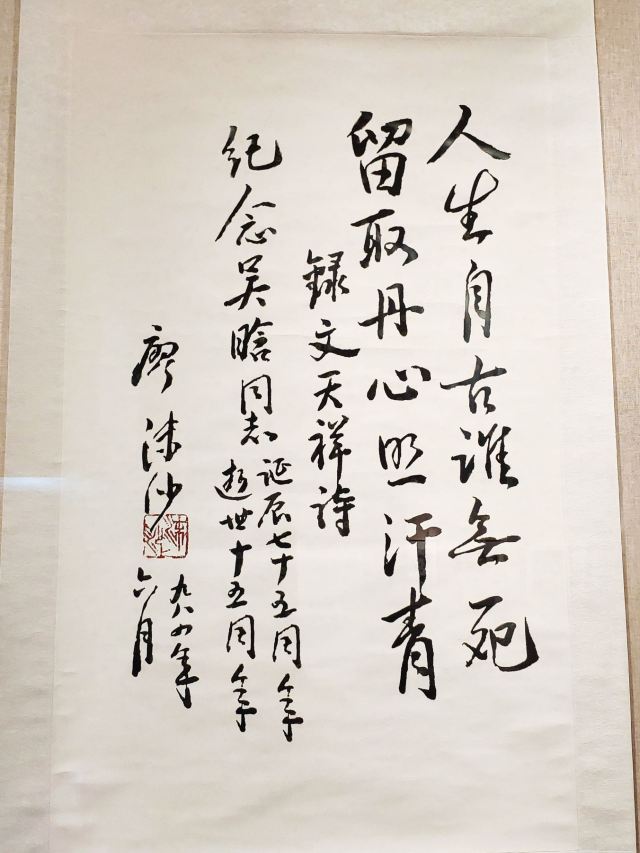 人生自古谁無死
留取丹心照汗青
録文天祥诗
纪念吴晗同志
诞辰七十五周年
逝世十五周年
廖沫沙
沫沙
九八四年
六月